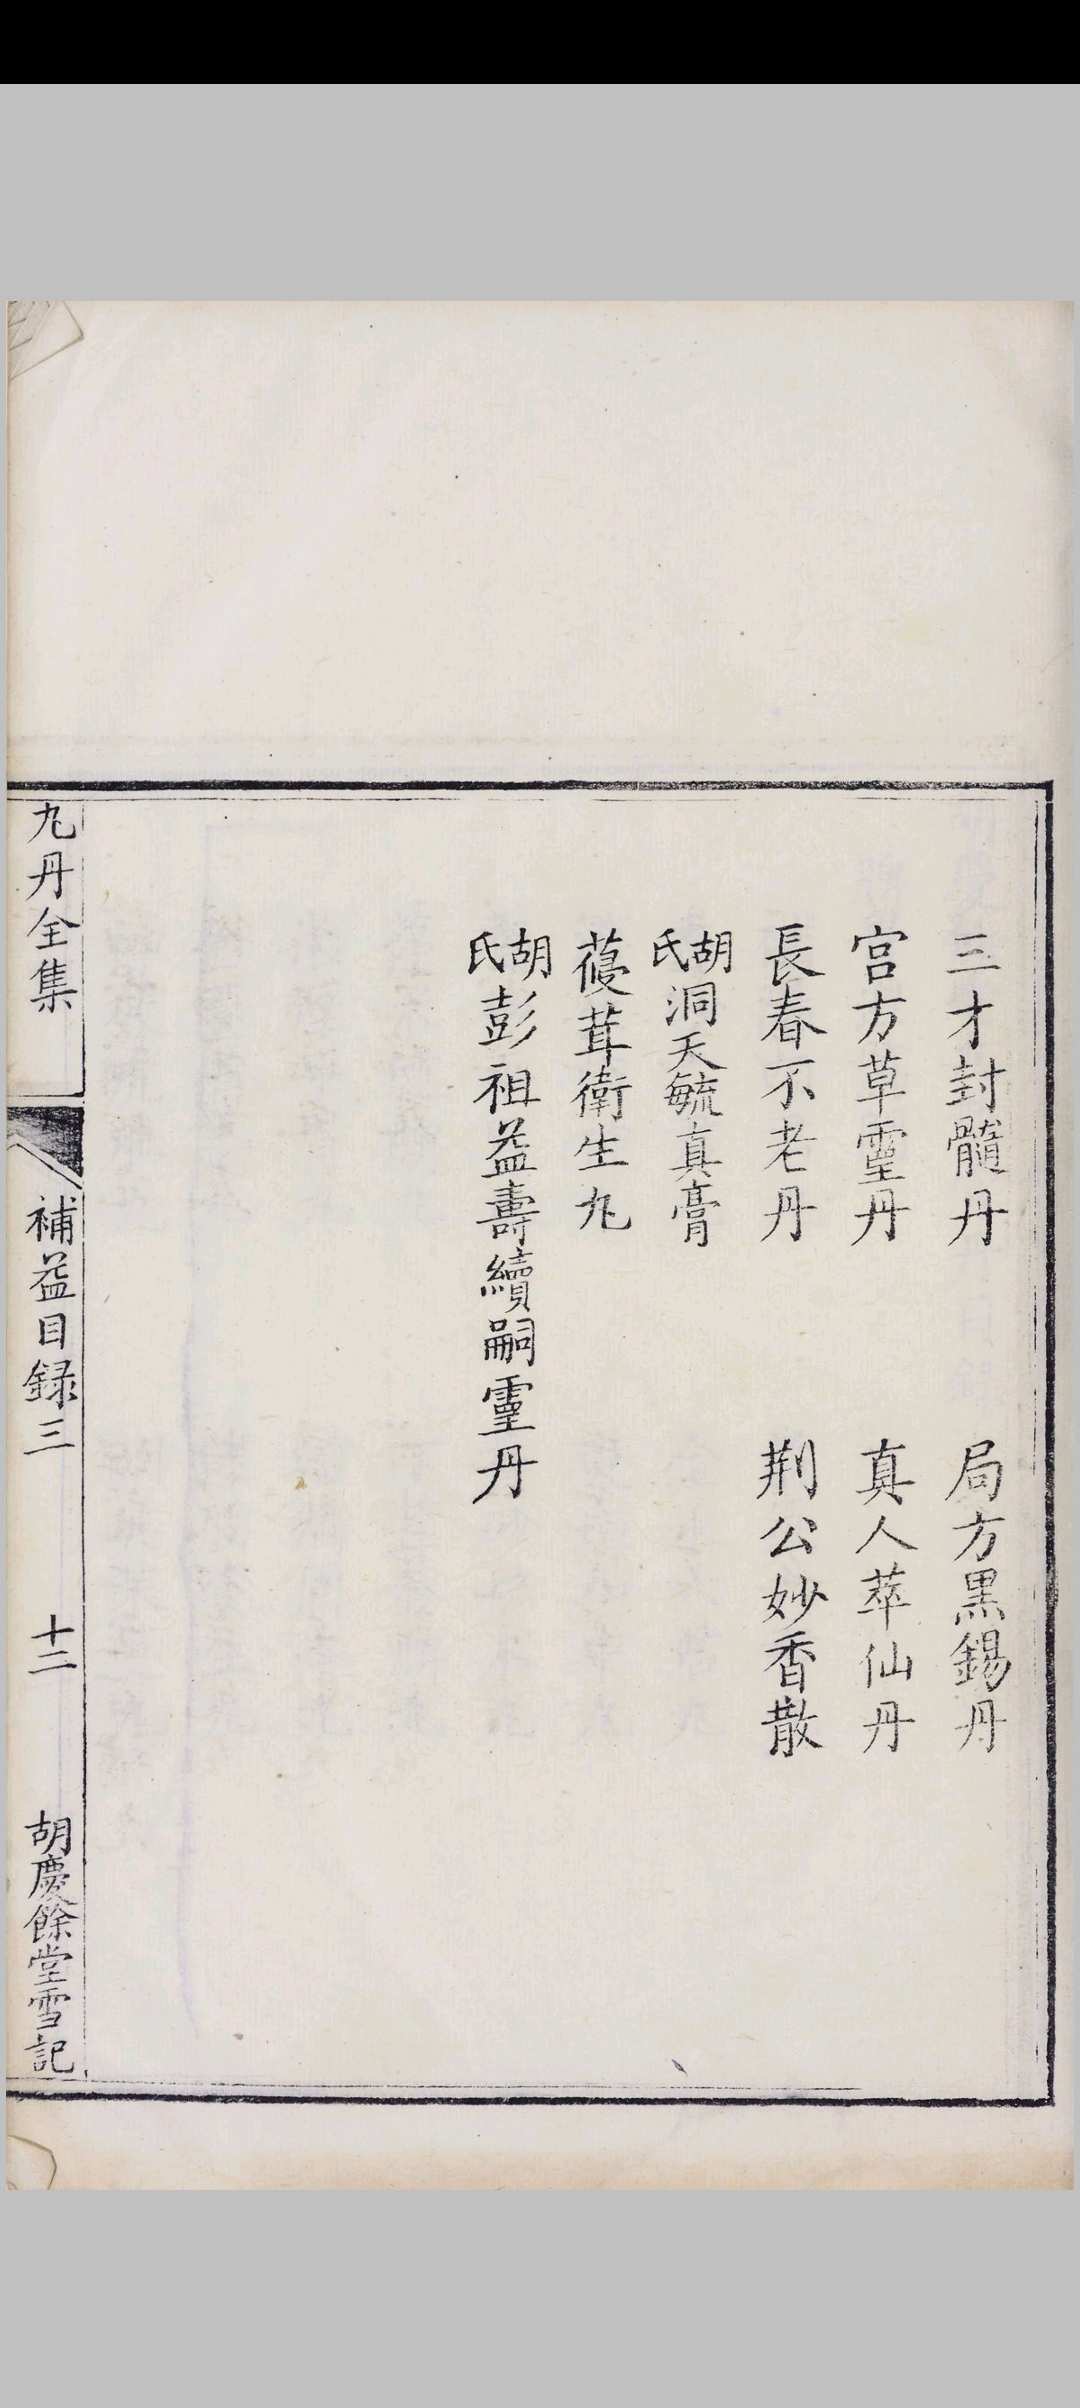 三才封髓丹
局方黒錫丹
宮方草靈丹
真人萃仙丹
長春不老丹
荆公妙香散
胡氏洞天毓真膏
葠茸衛生丸
胡氏彭祖益壽續嗣靈丹
丸丹全集
補益目録三
十二
胡慶餘堂雪記